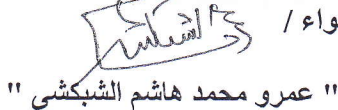 لواء /
" عمرو محمد هاشم الشبكشي "